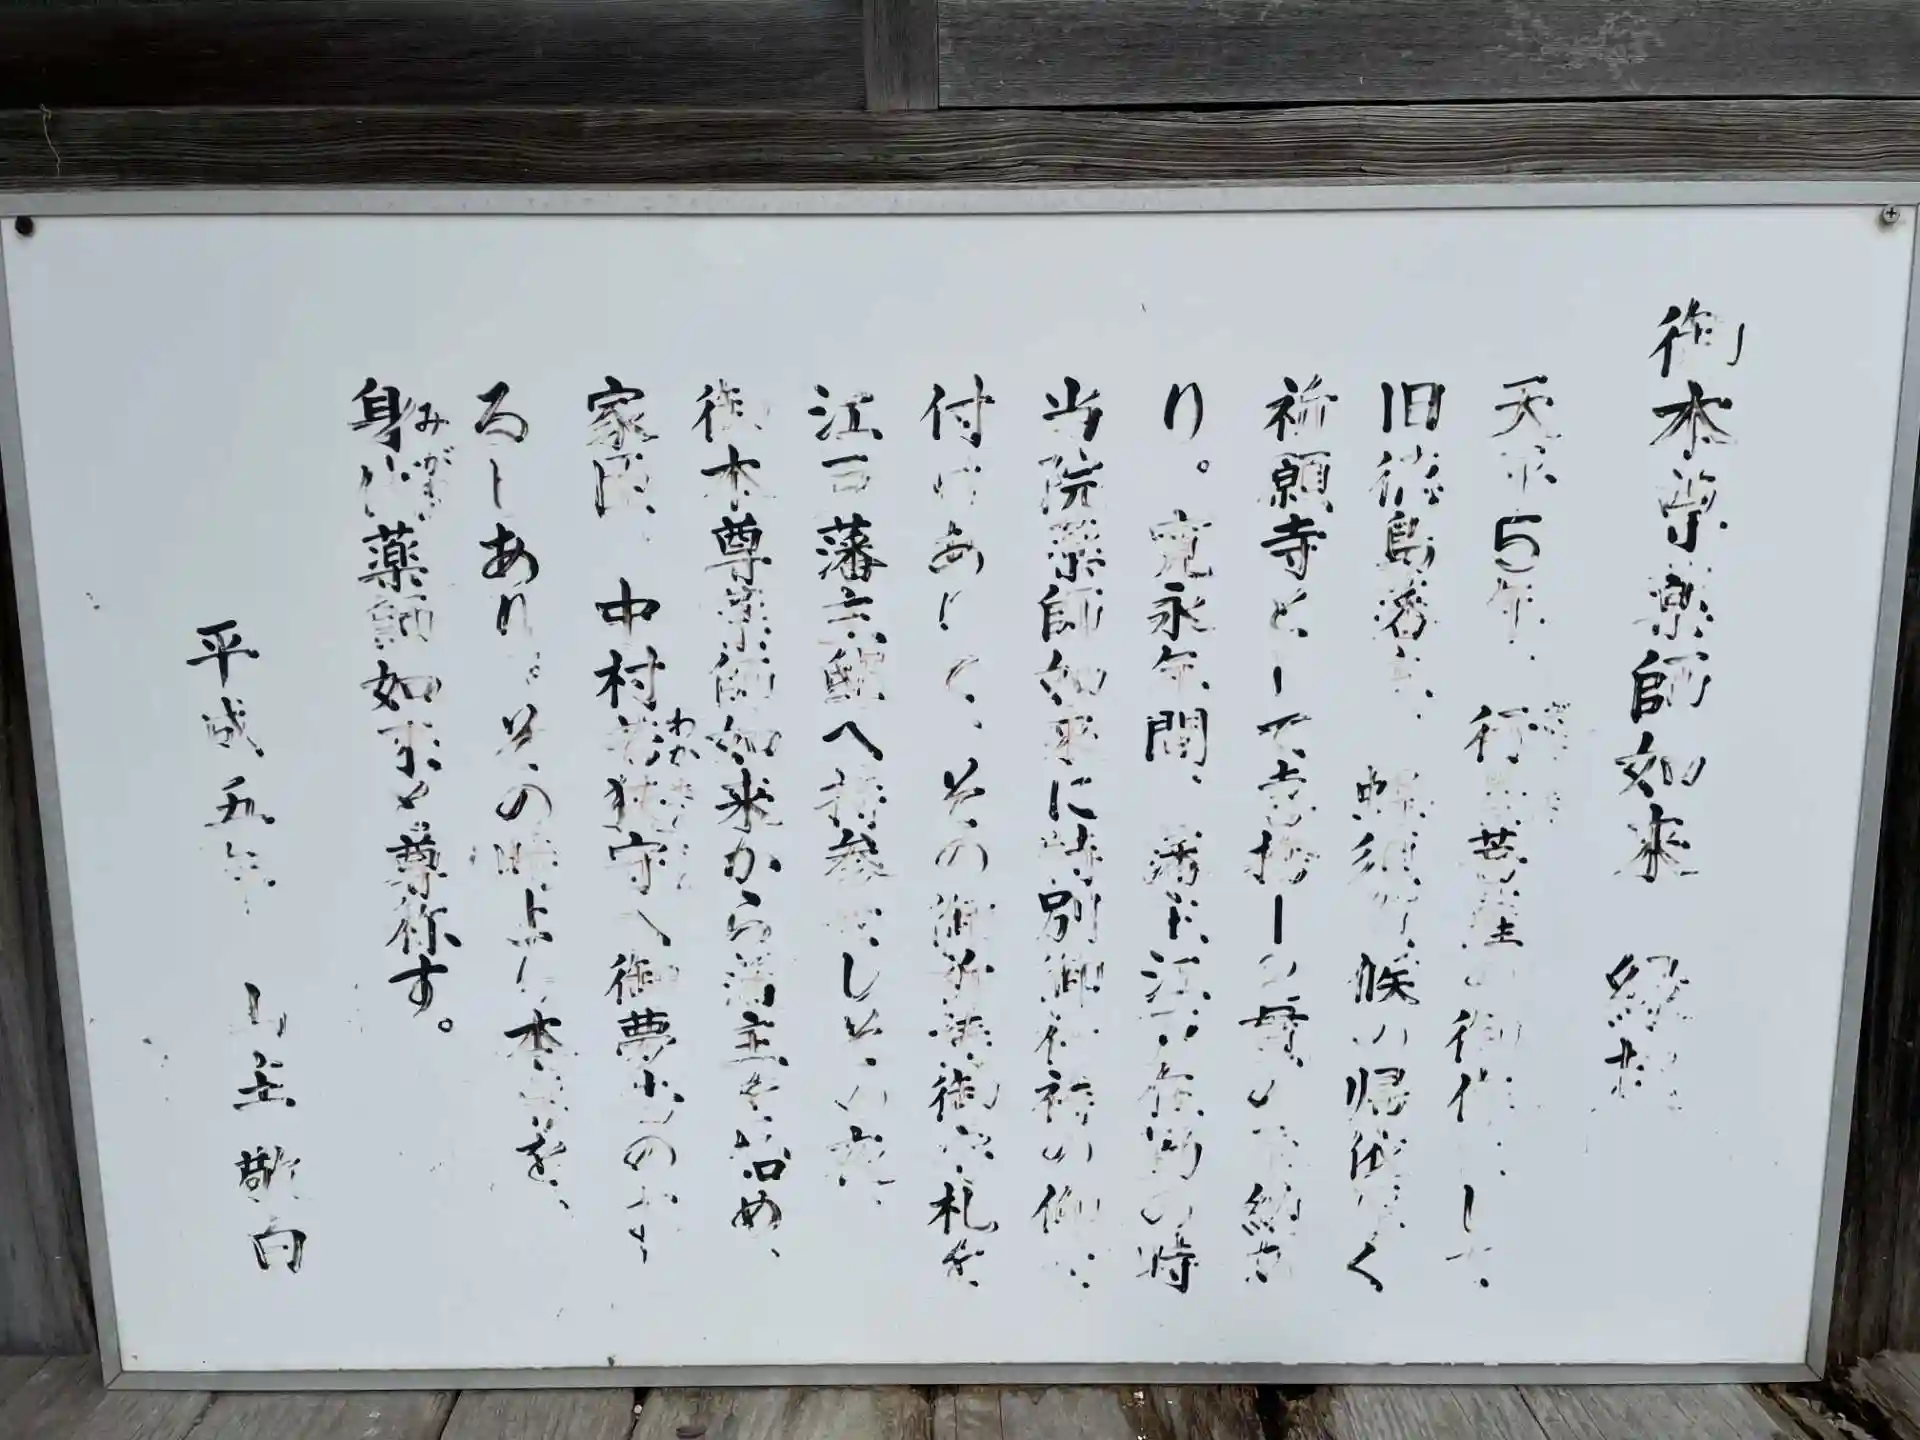 御本尊薬師如来 縁起
天平5年、行基菩薩の御作にして、
旧徳島藩主、蜂須賀候の帰依厚く
祈願寺として
り。寛永年間、藩主江戸在勤の時
当院薬師如来に特別御祈祷の仰
付けありて、その御祈祷御守札を
江戸藩主館へ持参せしその夜、
御本尊薬師如来から藩主
家臣、中村若狭守へ御夢
るしあり。その時より本尊を、
身代薬師如来と尊称す。
みがわり
わかさ
平成五年 山主敬白